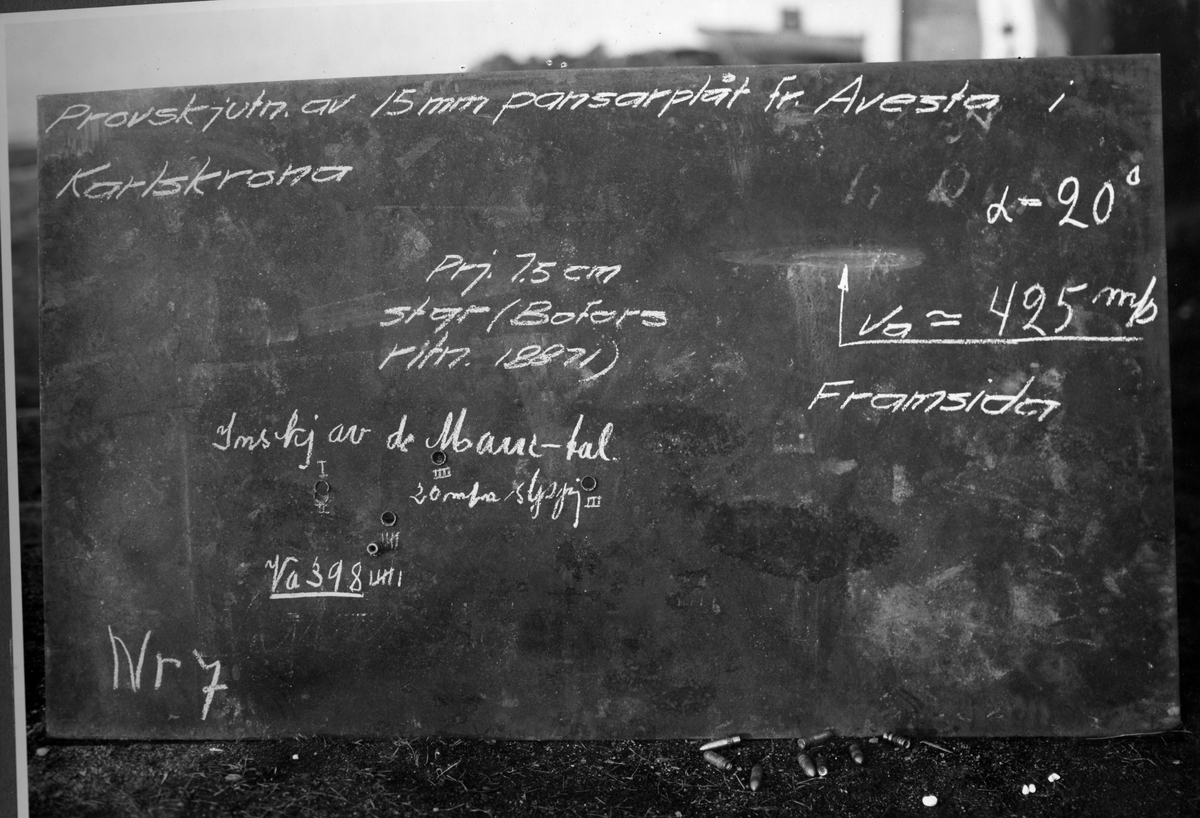 Provskjutn. av 15 mm pansarplåt fr. Avesta i
Karlskrona
α = 20°
Prj. 7.5 cm
spgr (Bofors
ritn. 18871)
Va ≈ 425 m/s
Framsida
Inskj av
I
II
III
IIII
Va 398
Nr 7